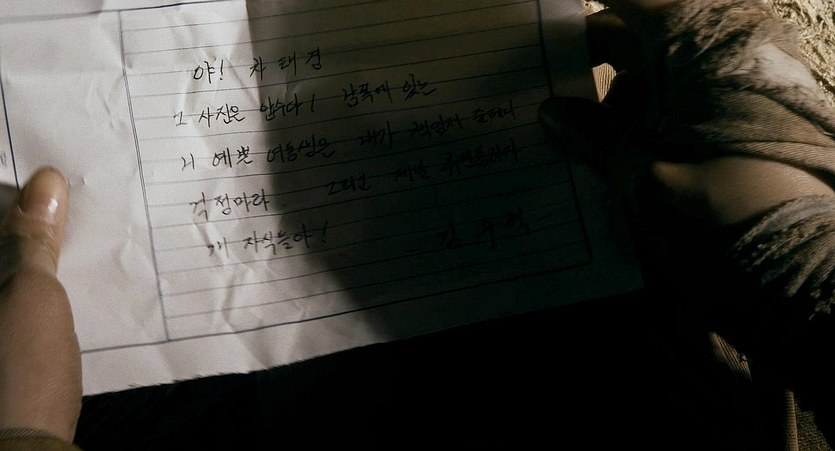 야! 차태경
그 사진은 압수다! 남쪽에 있는
니 예쁜 여동생은 내가
걱정마라 그리고 제발
개자식들아! 김수혁